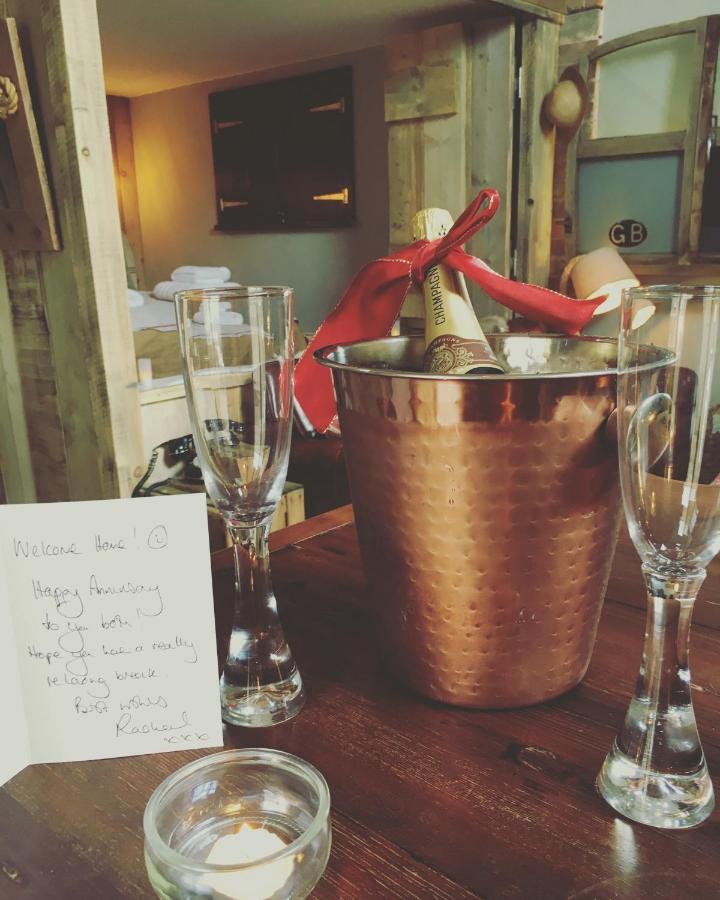 CHAMPAGNE
GB
Welcome Home! ☺
Happy Anniversary
to you both!
Hope you have a really
relaxing break.
Best wishes
Rachael
xxx